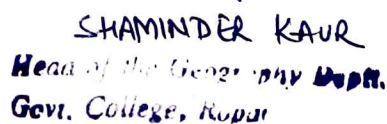 SHAMINDER KAUR
Head of the Geography Deptt.
Govt. College, Ropar